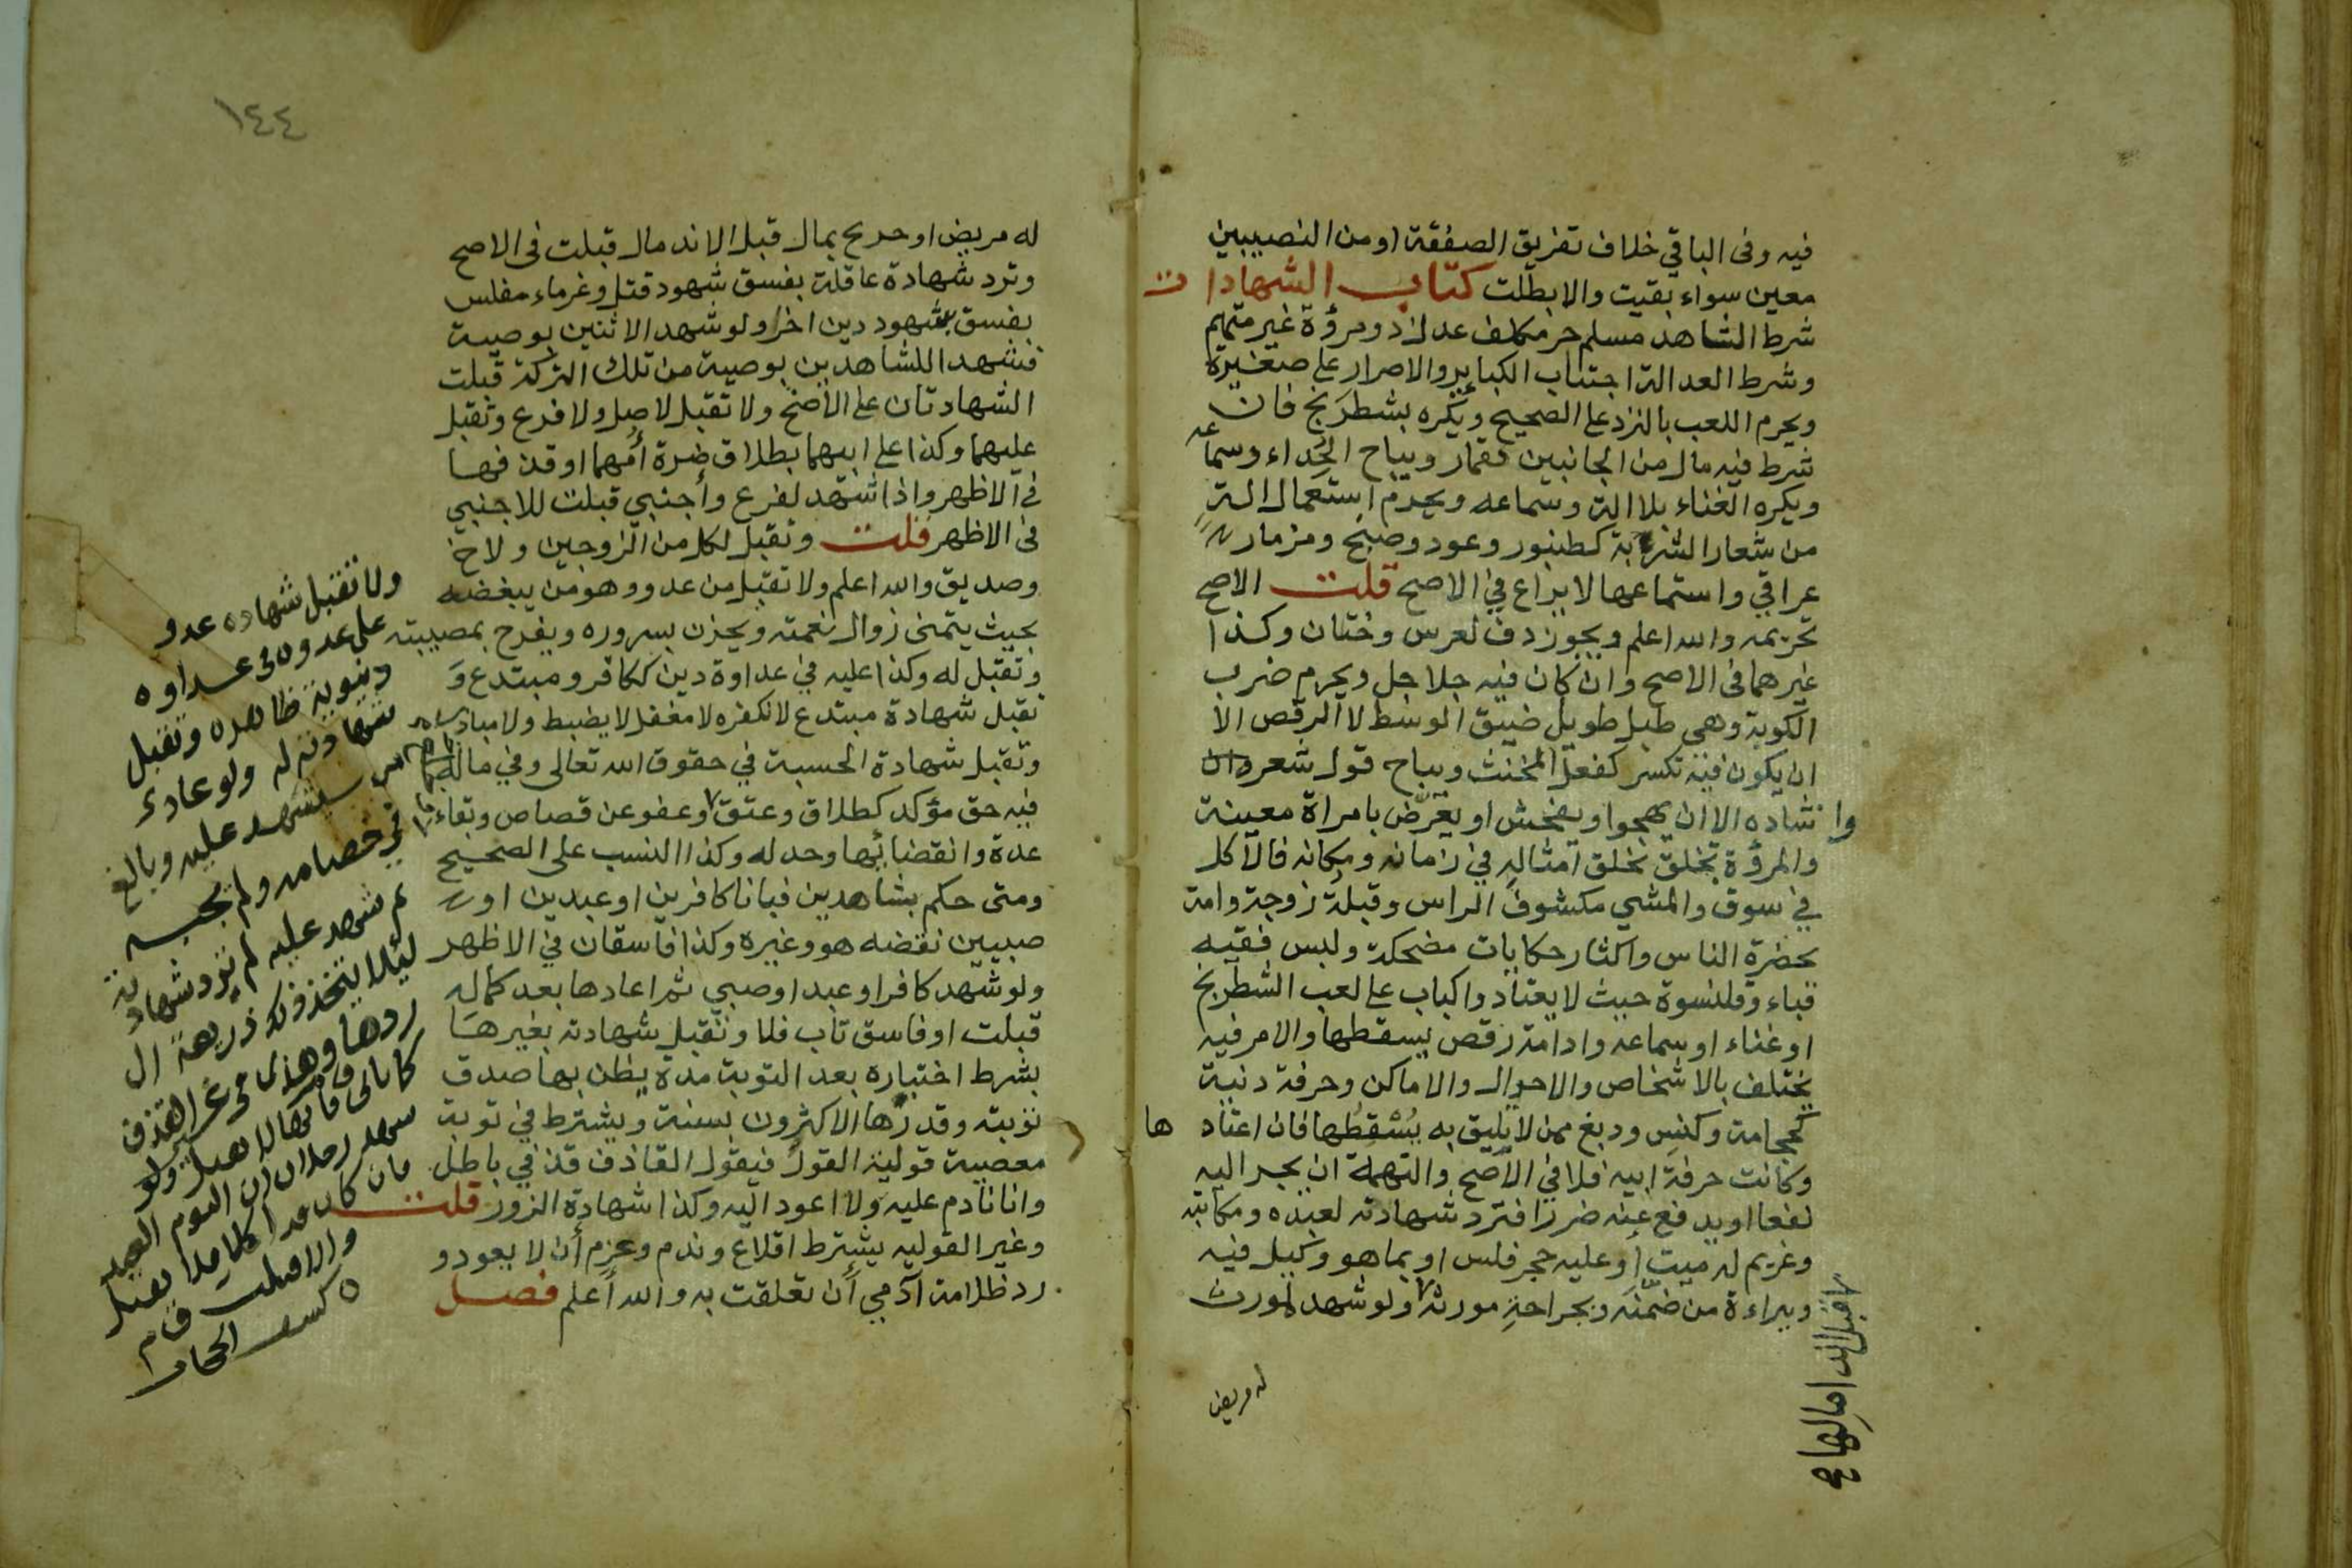 فيه وفى الباقي خلاف تفريق الصفقة او من النصيبين
معين سواء بقيت والا بطلت كتاب الشهادات
شرط الشاهد مسلم حر مكلف عدل ذو مرؤة غير متهم
وشرط العدالة اجتناب الكباير والاصرار على صغيرة
ويحرم اللعب بالنرد على الصحيح ويكره بشطرنج فان
شرط فيه مال من الجانبين فقمار ويباح الحداء وسماعه
ويكره الغناء بلا الة وسماعه ويحرم استعمال الة
من شعار الشربة كطنبور وعود وصنج ومزمار
عراقي واستماعها لا يراع في الاصح قلت الاصح
تحريمه والله اعلم ويجوز دف لعرس وختان وكذا
غيرهما فى الاصح وان كان فيه جلاجل ويحرم ضرب
الكوبة وهى طبل طويل ضيق الوسط لا الرقص الا
ان يكون فيه تكسر كفعل المخنث ويباح قول شعر وان
وانشاده الا ان يهجوا ويفحش او يعرض بامراة معينة
والمرؤة تخلق بخلق امثاله في زمانه ومكانه فالاكل
في سوق والمشي مكشوف الراس وقبلة زوجة وامة
بحضرة الناس واكثار حكايات مضحكة ولبس فقيه
قباء وقلنسوة حيث لا يعتاد واكباب على لعب الشطرنج
او غناء او سماعه وادامة رقص يسقطها والامر فيه
يختلف بالاشخاص والاحوال والاماكن وحرفة دنية
كحجامة وكنس ودبغ ممن لا يليق به يسقطها فان اعتادها
وكانت حرفة ابيه فلا في الاصح والتهمة ان يجر اليه
نفعا او يدفع عنه ضررا فترد شهادته لعبده ومكاتبه
وغريم له ميت او عليه حجر فلس او بما هو وكيل فيه
وببراءة من ضمنه وبجراحة مورثه ولو شهد لمورث
قبل اندمالها صح
له مريض
١٤٤
له مريض او جريح بمال قبل الاندمال قبلت فى الاصح
وترد شهادة عاقلة بفسق شهود قتل وغرماء مفلس
بفسق شهود دين اخر ولو شهد الاثنين بوصية
فشهدا للشاهدين بوصية من تلك التركة قبلت
الشهادتان على الاصح ولا تقبل لاصل ولا فرع وتقبل
عليهما وكذا على ابيهما بطلاق ضرة أمهما او قذفها
في الاظهر واذا شهد لفرع وأجنبي قبلت للاجنبي
فى الاظهر قلت وتقبل لكل من الزوجين ولاخ
وصديق والله اعلم ولا تقبل من عدو وهو من يبغضه
بحيث يتمنى زوال نعمته ويحزن بسروره ويفرح بمصيبته
وتقبل له وكذا عليه في عداوة دين ككافر ومبتدع و
تقبل شهادة مبتدع لا نكفره لا مغفل لا يضبط ولا مبادر
وتقبل شهادة الحسبة في حقوق الله تعالى وفي ماله
فيه حق مؤكد كطلاق وعتق وعفو عن قصاص وبقاء
عدة وانقضائها وحد له وكذا النسب على الصحيح
ومتى حكم بشاهدين فبانا كافرين او عبدين او
صبيين نقضه هو وغيره وكذا فاسقان في الاظهر
ولو شهد كافر او عبد او صبي ثم اعادها بعد كماله
قبلت او فاسق تاب فلا وتقبل شهادته بغيرها
بشرط اختباره بعد التوبة مدة يظن بها صدق
توبته وقدرها الاكثرون بسنة ويشترط في توبة
معصية قولية القول فيقول القاذف قذفي باطل
وانا نادم عليه ولا اعود اليه وكذا شهادة الزور قلت
وغير القوليه يشترط اقلاع وندم وعزم أن لا يعود و
رد ظلامة آدمي أن تعلقت به والله أعلم فصل
ولا تقبل شهاده عدو
على عدو فى عداوه
دنيوية ظاهره وتقبل
شهادته له ولو عادى
من يستشهد عليه وبالغ
في خصامه ولم يجبه
ثم شهد عليه لم ترد شهادته
ليلا يتخذ ذلك ذريعة الى
ردها وهذا فى غير القذف